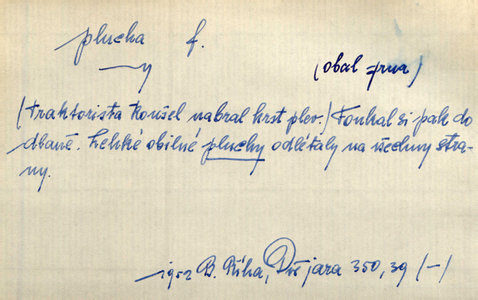 plucha f.
(obal zrna)
(Traktorista Koušel nabral hrst plev.) Foukal si pak do
dlaně. Lehké obilné pluchy odlétaly na všechny stra-
ny.
1952 B. Říha, Dvě jara 350, 39 (—)